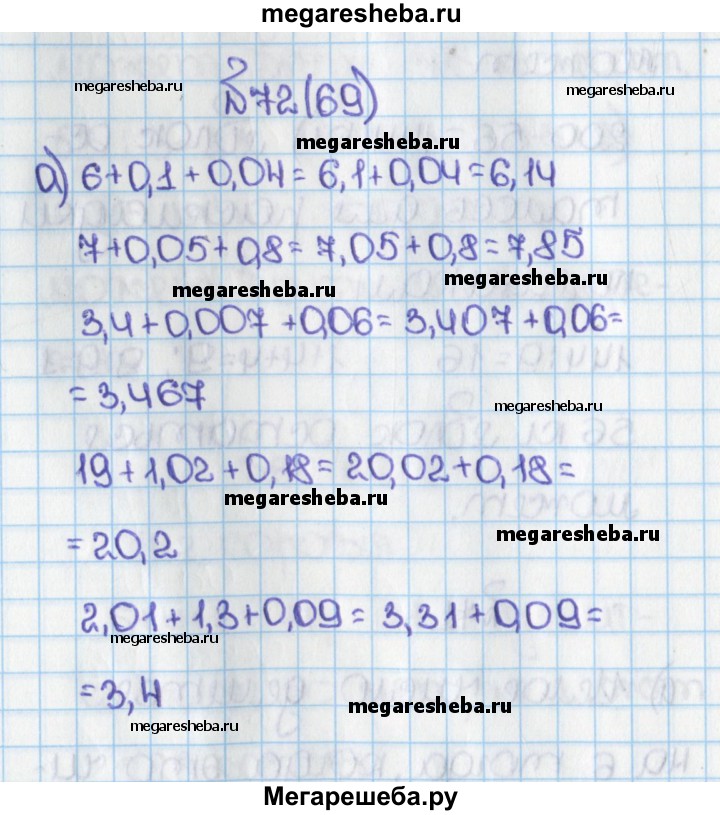 megaresheba.ru
megaresheba.ru
№72(69)
megaresheba.ru
megaresheba.ru
а) 6+0,1+0,04=6,1+0,04=6,14
7+0,05+0,8=7,05+0,8=7,85
megaresheba.ru
megaresheba.ru
3,4+0,007+0,06=3,407+0,06=
=3,467
megaresheba.ru
19+1,02+0,18=20,02+0,18=
megaresheba.ru
=20,2
megaresheba.ru
2,01+1,3+0,09=3,31+0,09=
megaresheba.ru
=3,4
megaresheba.ru
megaresheba.ru
Мегарешеба.ру